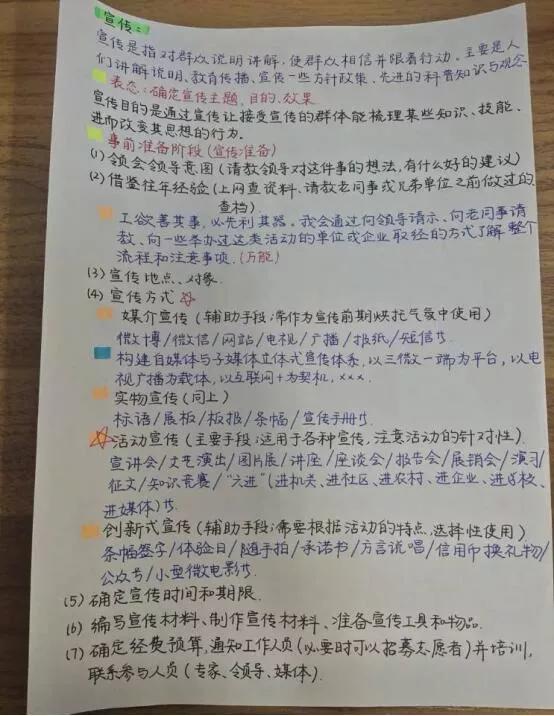 宣传:
宣传是指对群众说明讲解,使群众相信并跟着行动。主要是人
们讲解说明、教育传播、宣传一些方针政策、先进的科普知识与观念
表态:确定宣传主题、目的、效果
宣传目的是通过宣传让接受宣传的群体能梳理某些知识、技能、
进而改变其思想的行为.
事前准备阶段(宣传准备)
(1) 领会领导意图(请教领导对这件事的想法,有什么好的建议)
(2) 借鉴往年经验(上网查资料、请教老同事或兄弟单位之前做过的
查档).
工欲善其事,必先利其器。我会通过向领导请示、向老同事请
教、向一些举办过这类活动的单位或企业取经的方式了解整个
流程和注意事项.(万能)
(3) 宣传地点、对象.
(4) 宣传方式☆
媒介宣传(辅助手段;常作为宣传前期烘托气氛中使用)
微博/微信/网站/电视/广播/报纸/短信等.
构建自媒体与子媒体立体式宣传体系,以三微一端为平台,以电
视广播为载体,以互联网+为契机,×××.
实物宣传(同上)
标语/展板/板报/条幅/宣传手册等.
☆活动宣传(主要手段;适用于各种宣传,注意活动的针对性).
宣讲会/文艺演出/图片展/讲座/座谈会/报告会/展销会/演习/
征文/知识竞赛/“六进”(进机关、进社区、进农村、进企业、进学校、
进媒体)等.
创新式宣传(辅助手段;需要根据活动的特点,选择性使用)
条幅签字/体验日/随手拍/承诺书/方言说唱/信用币换礼物/
公众号/小型微电影等.
(5) 确定宣传时间和期限.
(6) 编写宣传材料、制作宣传材料、准备宣传工具和物品.
(7) 确定经费预算,通知工作人员(必要时可以招募志愿者)并培训,
联系参与人员(专家、领导、媒体).